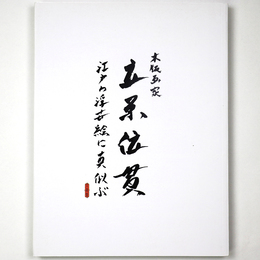 木版画家
立原位貫
江戸の浮世絵に真似ぶ